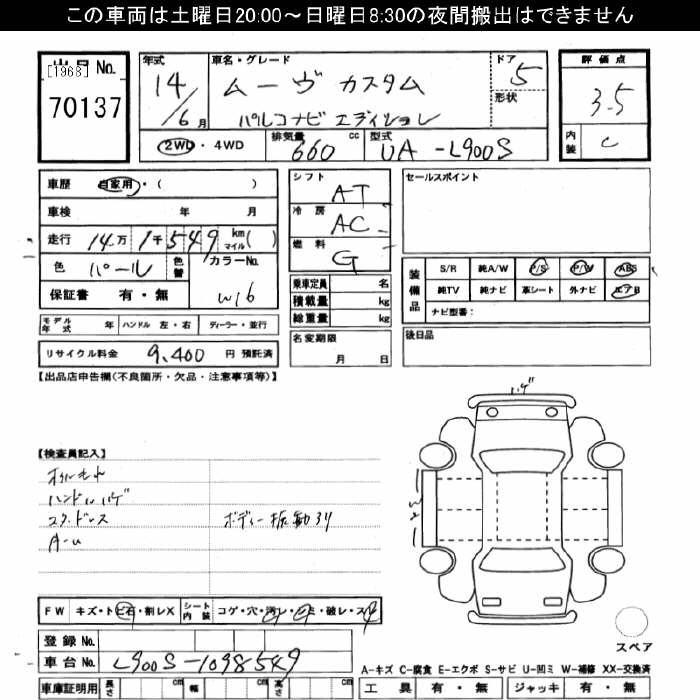 この車両は土曜日20:00～日曜日8:30の夜間搬出はできません
出品No.
[1968]
70137
年式
14/6月
車名・グレード
ムーヴ カスタム
パルコナビ エディション
ドア
5
形状
評価点
3.5
内装
C
2WD・4WD
排気量
660 cc
型式
UA-L900S
車歴 自家用・( )
車検 年 月
走行 14万1千549 km マイル( )
色 パール 色替
カラーNo.
W16
保証書 有・無
シフト AT
冷房 AC
燃料 G
乗車定員 名
積載量 kg
総重量 kg
セールスポイント
装備品
S/R 純A/W P/S P/W ABS
純TV 純ナビ 革シート 外ナビ エアB
ナビ型番:
モデル年式 年 ハンドル 左・右 ディーラー・並行
リサイクル料金 9,400 円 預託済
名変期限
月 日
後日品
【出品店申告欄(不良箇所・欠品・注意事項等)】
【検査員記入】
ハンドルハゲ
ボディー振動
FW キズ・トビ石・割レX
シート内装 コゲ・穴・汚レ
登録No.
車台No. L900S-1098549
車庫証明用 長さ cm 幅 cm 高さ cm
スペア
A-キズ C-腐食 E-エクボ S-サビ U-凹ミ W-補修 XX-交換済
工具 有・無 ジャッキ 有・無